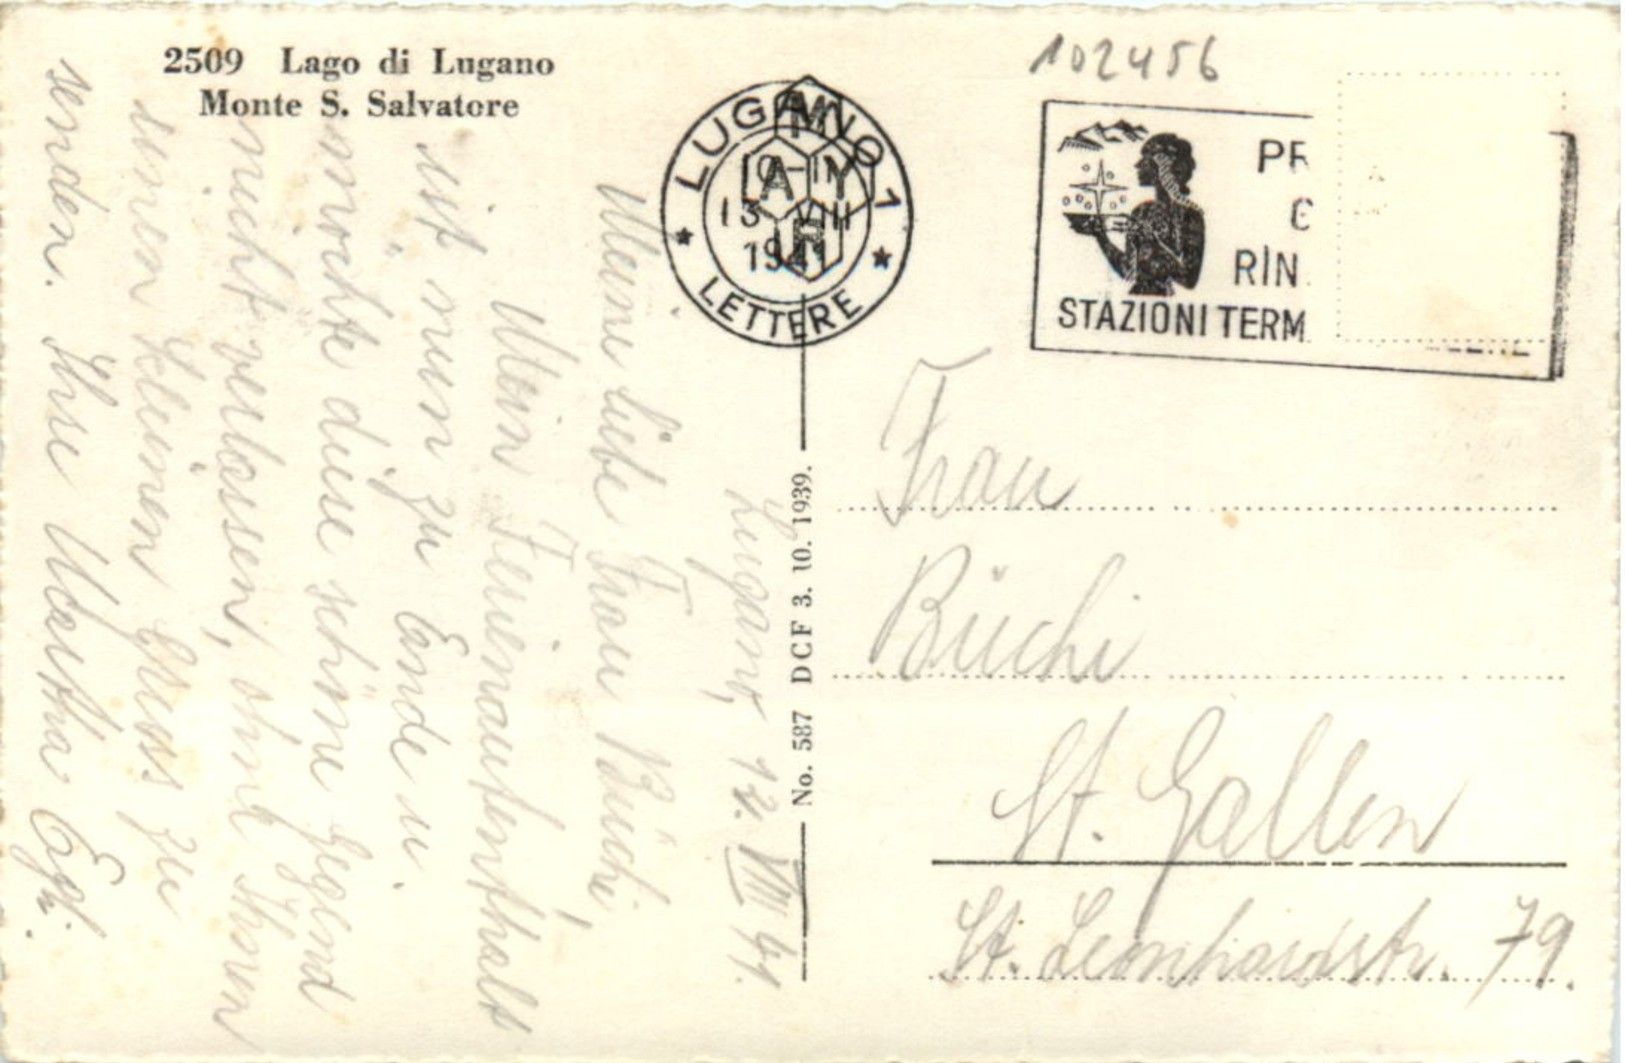 2509 Lago di Lugano
Monte S. Salvatore
LUGANO 1
13 VIII
1941
LETTERE
102456
PR
RIN
STAZIONI TERM
No. 587 DCF 3. 10. 1939.
Lugano, 12. VIII 41.
Meine liebe Frau Büchi,
Mein Ferienaufenthalt
ist nun zu Ende u.
möchte diese schöne Gegend
nicht verlassen, ohne Ihnen
einen kleinen Gruss zu
senden. Ihre Martha Egli.
Frau
Büchi
St. Gallen
St. Leonhardstr. 79.